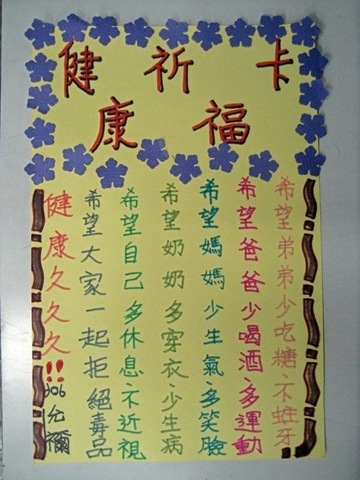 健康祈福卡
希望弟弟少吃糖、不蛀牙
希望爸爸少喝酒、多運動
希望媽媽少生氣、多笑臉
希望奶奶多穿衣、少生病
希望自己多休息、不近視
希望大家一起拒絕毒品
健康久久久!!
306
允禰